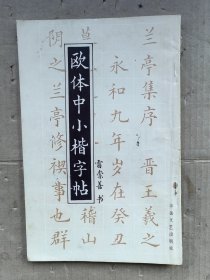 兰亭集序 晋王羲之
永和九年岁在癸丑
稽山
阴之兰亭修禊事也群
欧体中小楷字帖
雷崇善 书
华岳文艺出版社